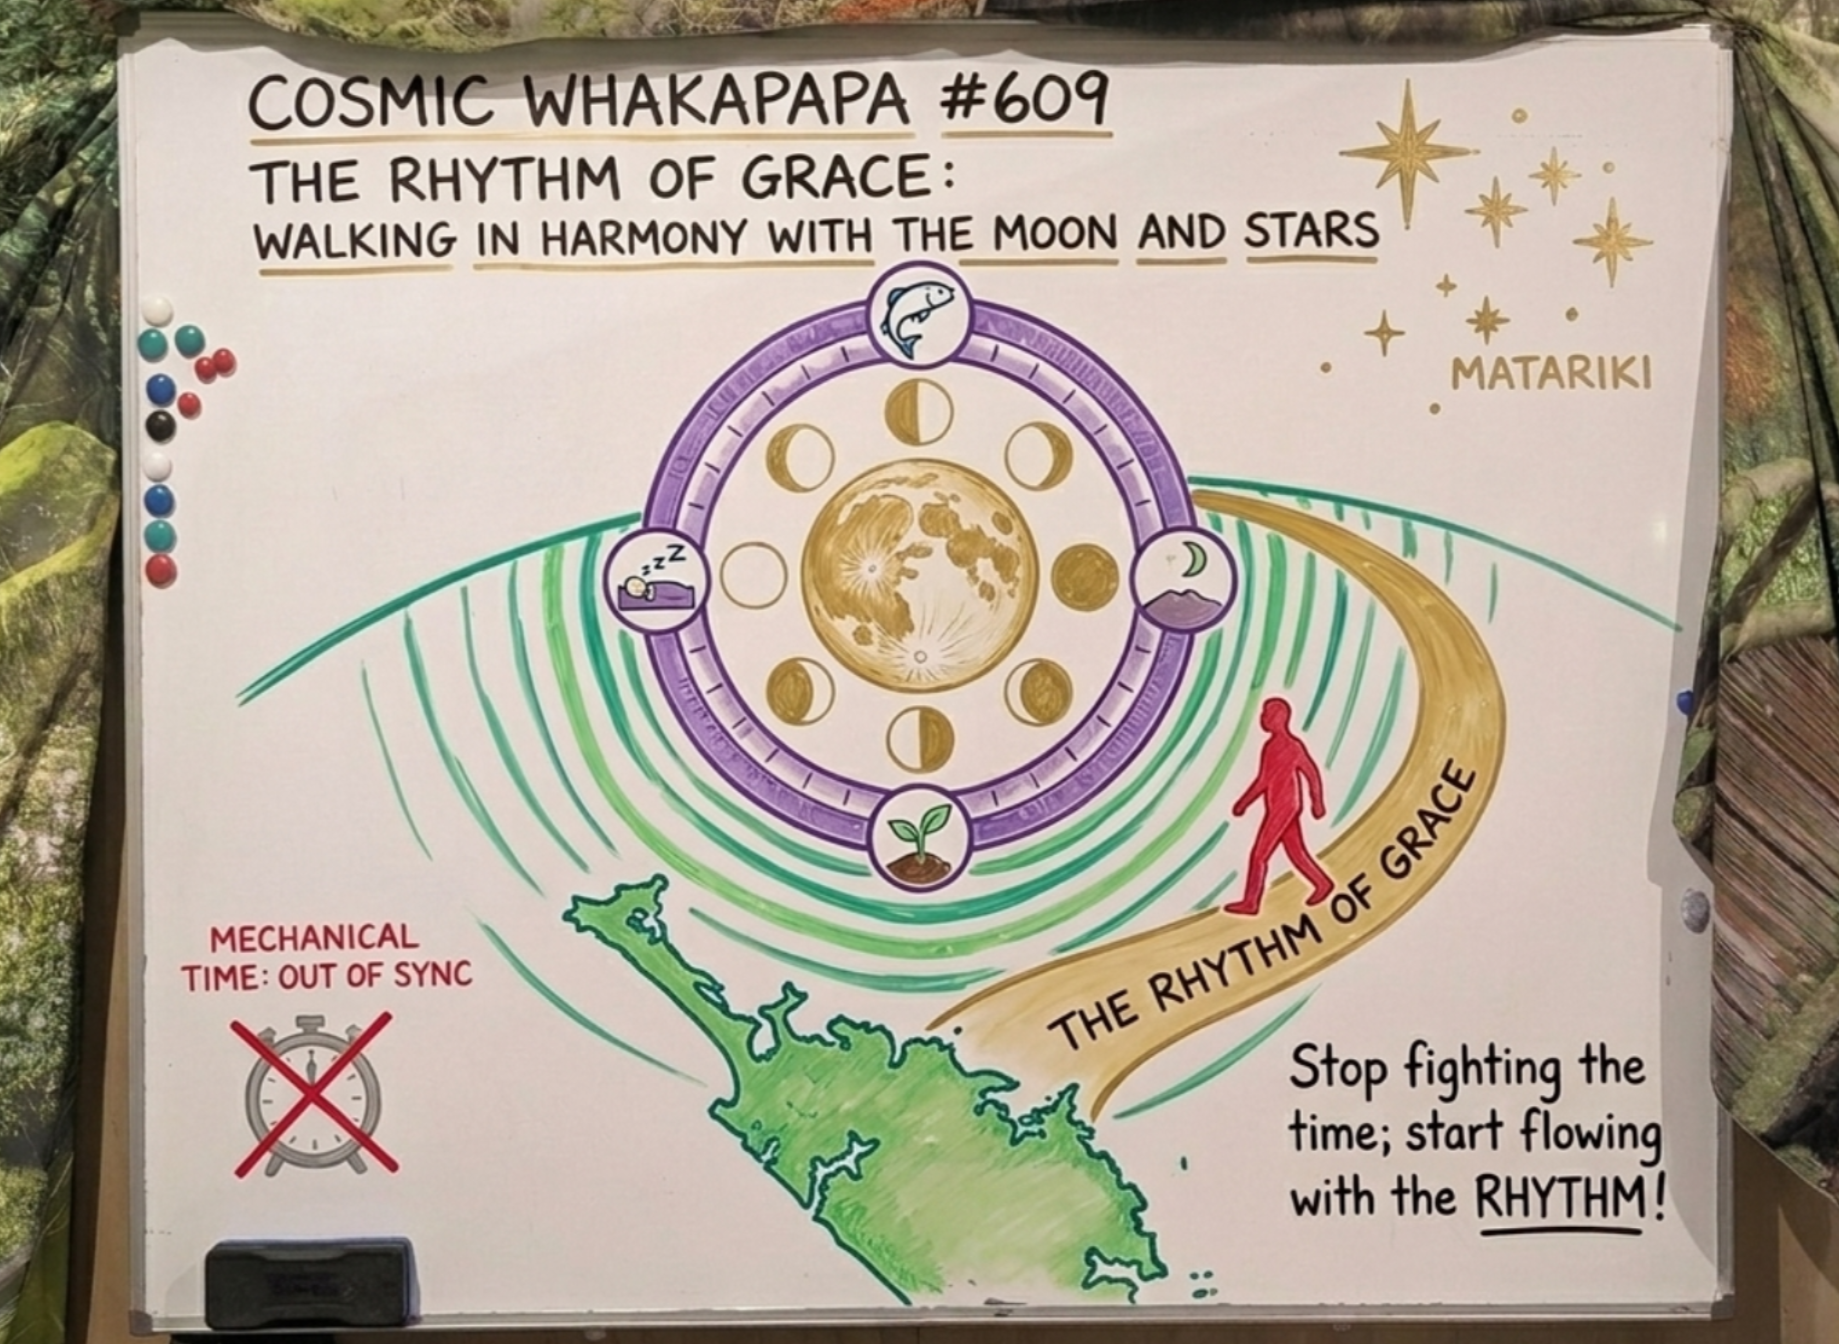 COSMIC WHAKAPAPA #609
THE RHYTHM OF GRACE:
WALKING IN HARMONY WITH THE MOON AND STARS
MATARIKI
zzZZ
THE RHYTHM OF GRACE
MECHANICAL
TIME: OUT OF SYNC
Stop fighting the
time; start flowing
with the RHYTHM!